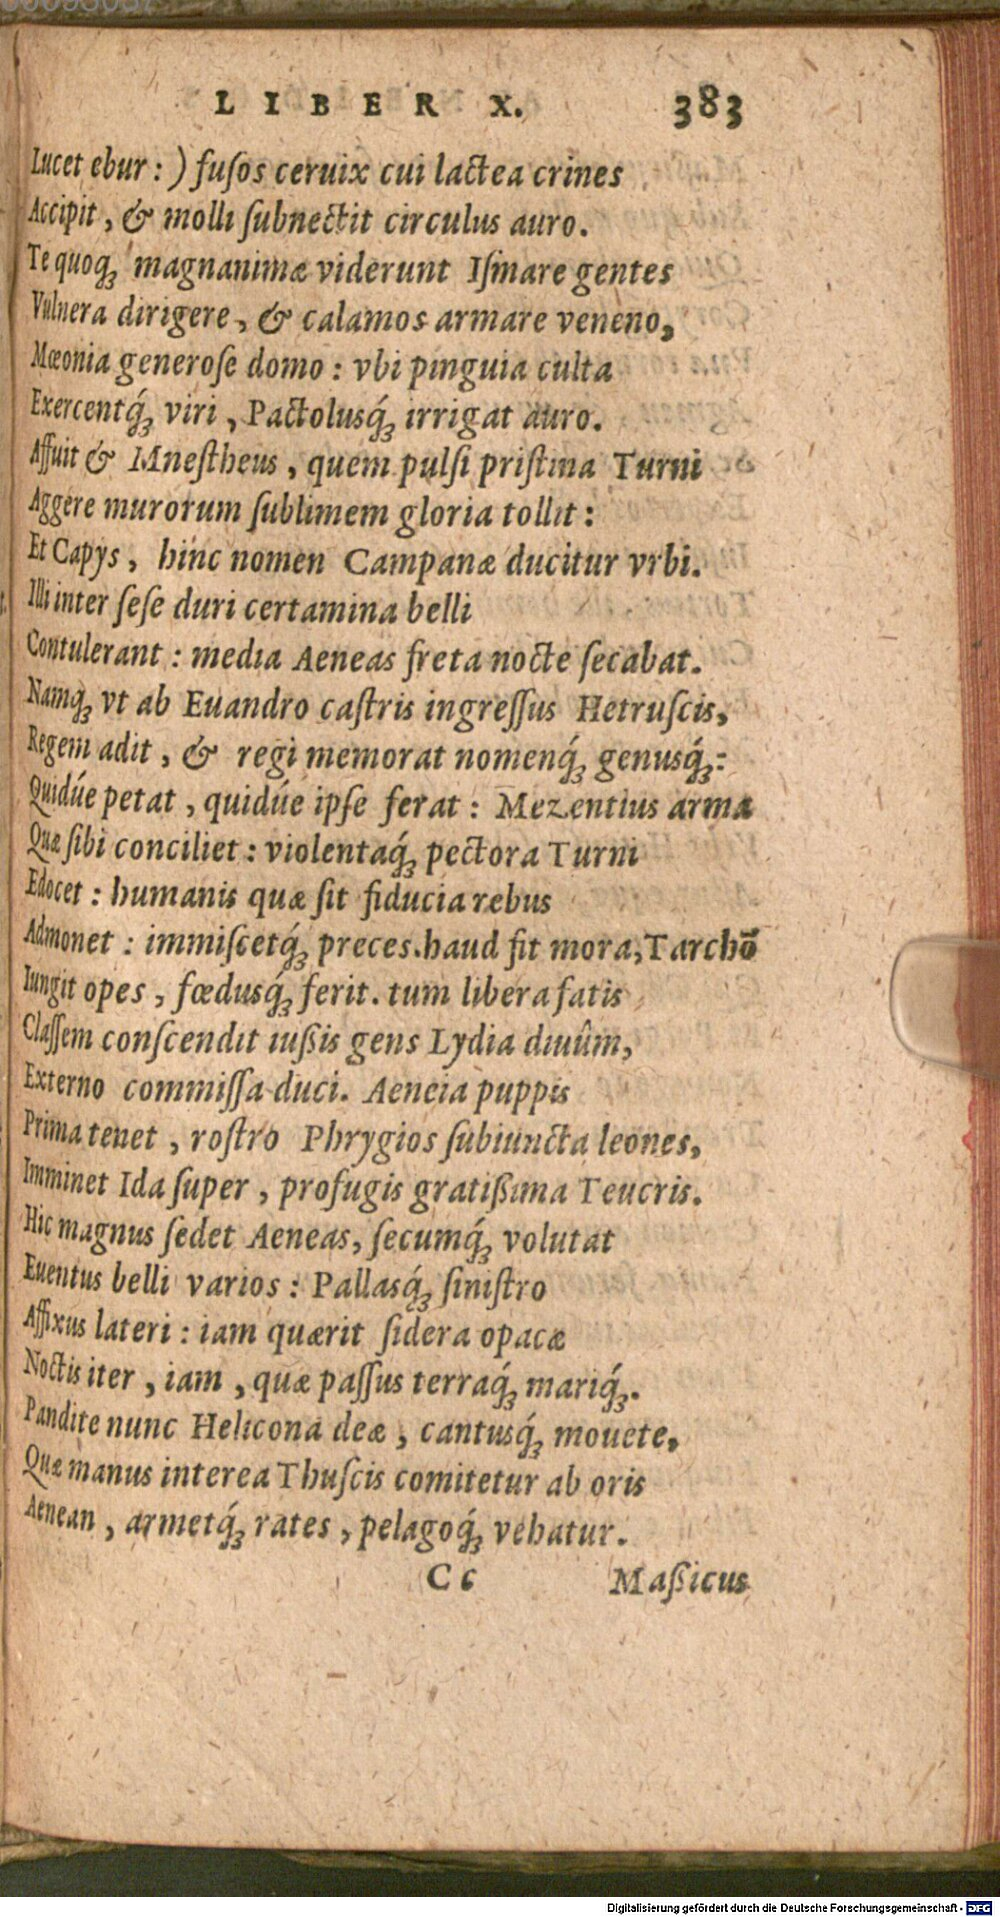 LIBER X. 383
Lucet ebur: ) fuſos ceruix cui lactea crines
Accipit, & molli ſubnectit circulus auro.
Te quoq́ꝫ magnanimæ viderunt Iſmare gentes
Vulnera dirigere, & calamos armare veneno,
Mæonia generoſe domo: vbi pinguia culta
Exercentq́ꝫ viri, Pactolusq́ꝫ irrigat auro.
Affuit & Mneſtheus, quem pulſi priſtina Turni
Aggere murorum ſublimem gloria tollit:
Et Capys, hinc nomen Campanæ ducitur vrbi.
Illi inter ſeſe duri certamina belli
Contulerant: media Aeneas freta nocte ſecabat.
Namq́ꝫ vt ab Euandro caſtris ingreſſus Hetruſcis,
Regem adit, & regi memorat nomenq́ꝫ genusq́ꝫ:
Quidúe petat, quidúe ipſe ferat: Mezentius arma
Quæ ſibi conciliet: violentaq́ꝫ pectora Turni
Edocet: humanis quæ ſit fiducia rebus
Admonet: immiſcetq́ꝫ preces. haud fit mora, Tarchō
Iungit opes, fœdusq́ꝫ ferit. tum libera fatis
Claſſem conſcendit iußis gens Lydia diuûm,
Externo commiſſa duci. Aeneia puppis
Prima tenet, roſtro Phrygios ſubiuncta leones,
Imminet Ida ſuper, profugis gratißima Teucris.
Hic magnus ſedet Aeneas, ſecumq́ꝫ volutat
Euentus belli varios: Pallasq́ꝫ ſiniſtro
Affixus lateri: iam quærit ſidera opacæ
Noctis iter, iam, quæ paſſus terraq́ꝫ mariq́ꝫ.
Pandite nunc Helicona deæ, cantusq́ꝫ mouete,
Quæ manus interea Thuſcis comitetur ab oris
Aenean, armetq́ꝫ rates, pelagoq́ꝫ vehatur.
Cc Maßicus
Digitalisierung gefördert durch die Deutsche Forschungsgemeinschaft - DFG